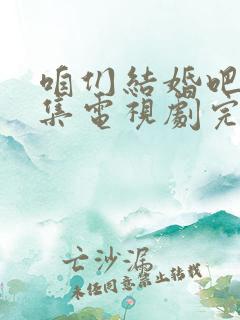 咱们結婚吧
集電視劇完
亡沙漏
未经同意禁止转载